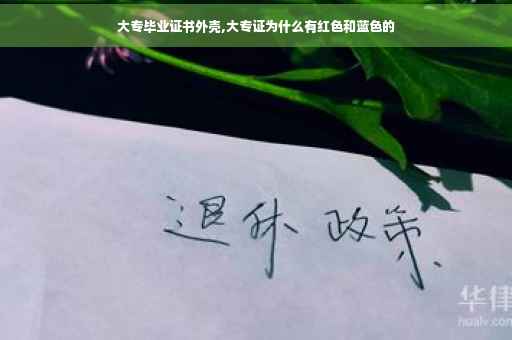 大专毕业证书外壳,大专证为什么有红色和蓝色的
退休 政策
华律
hualv.com